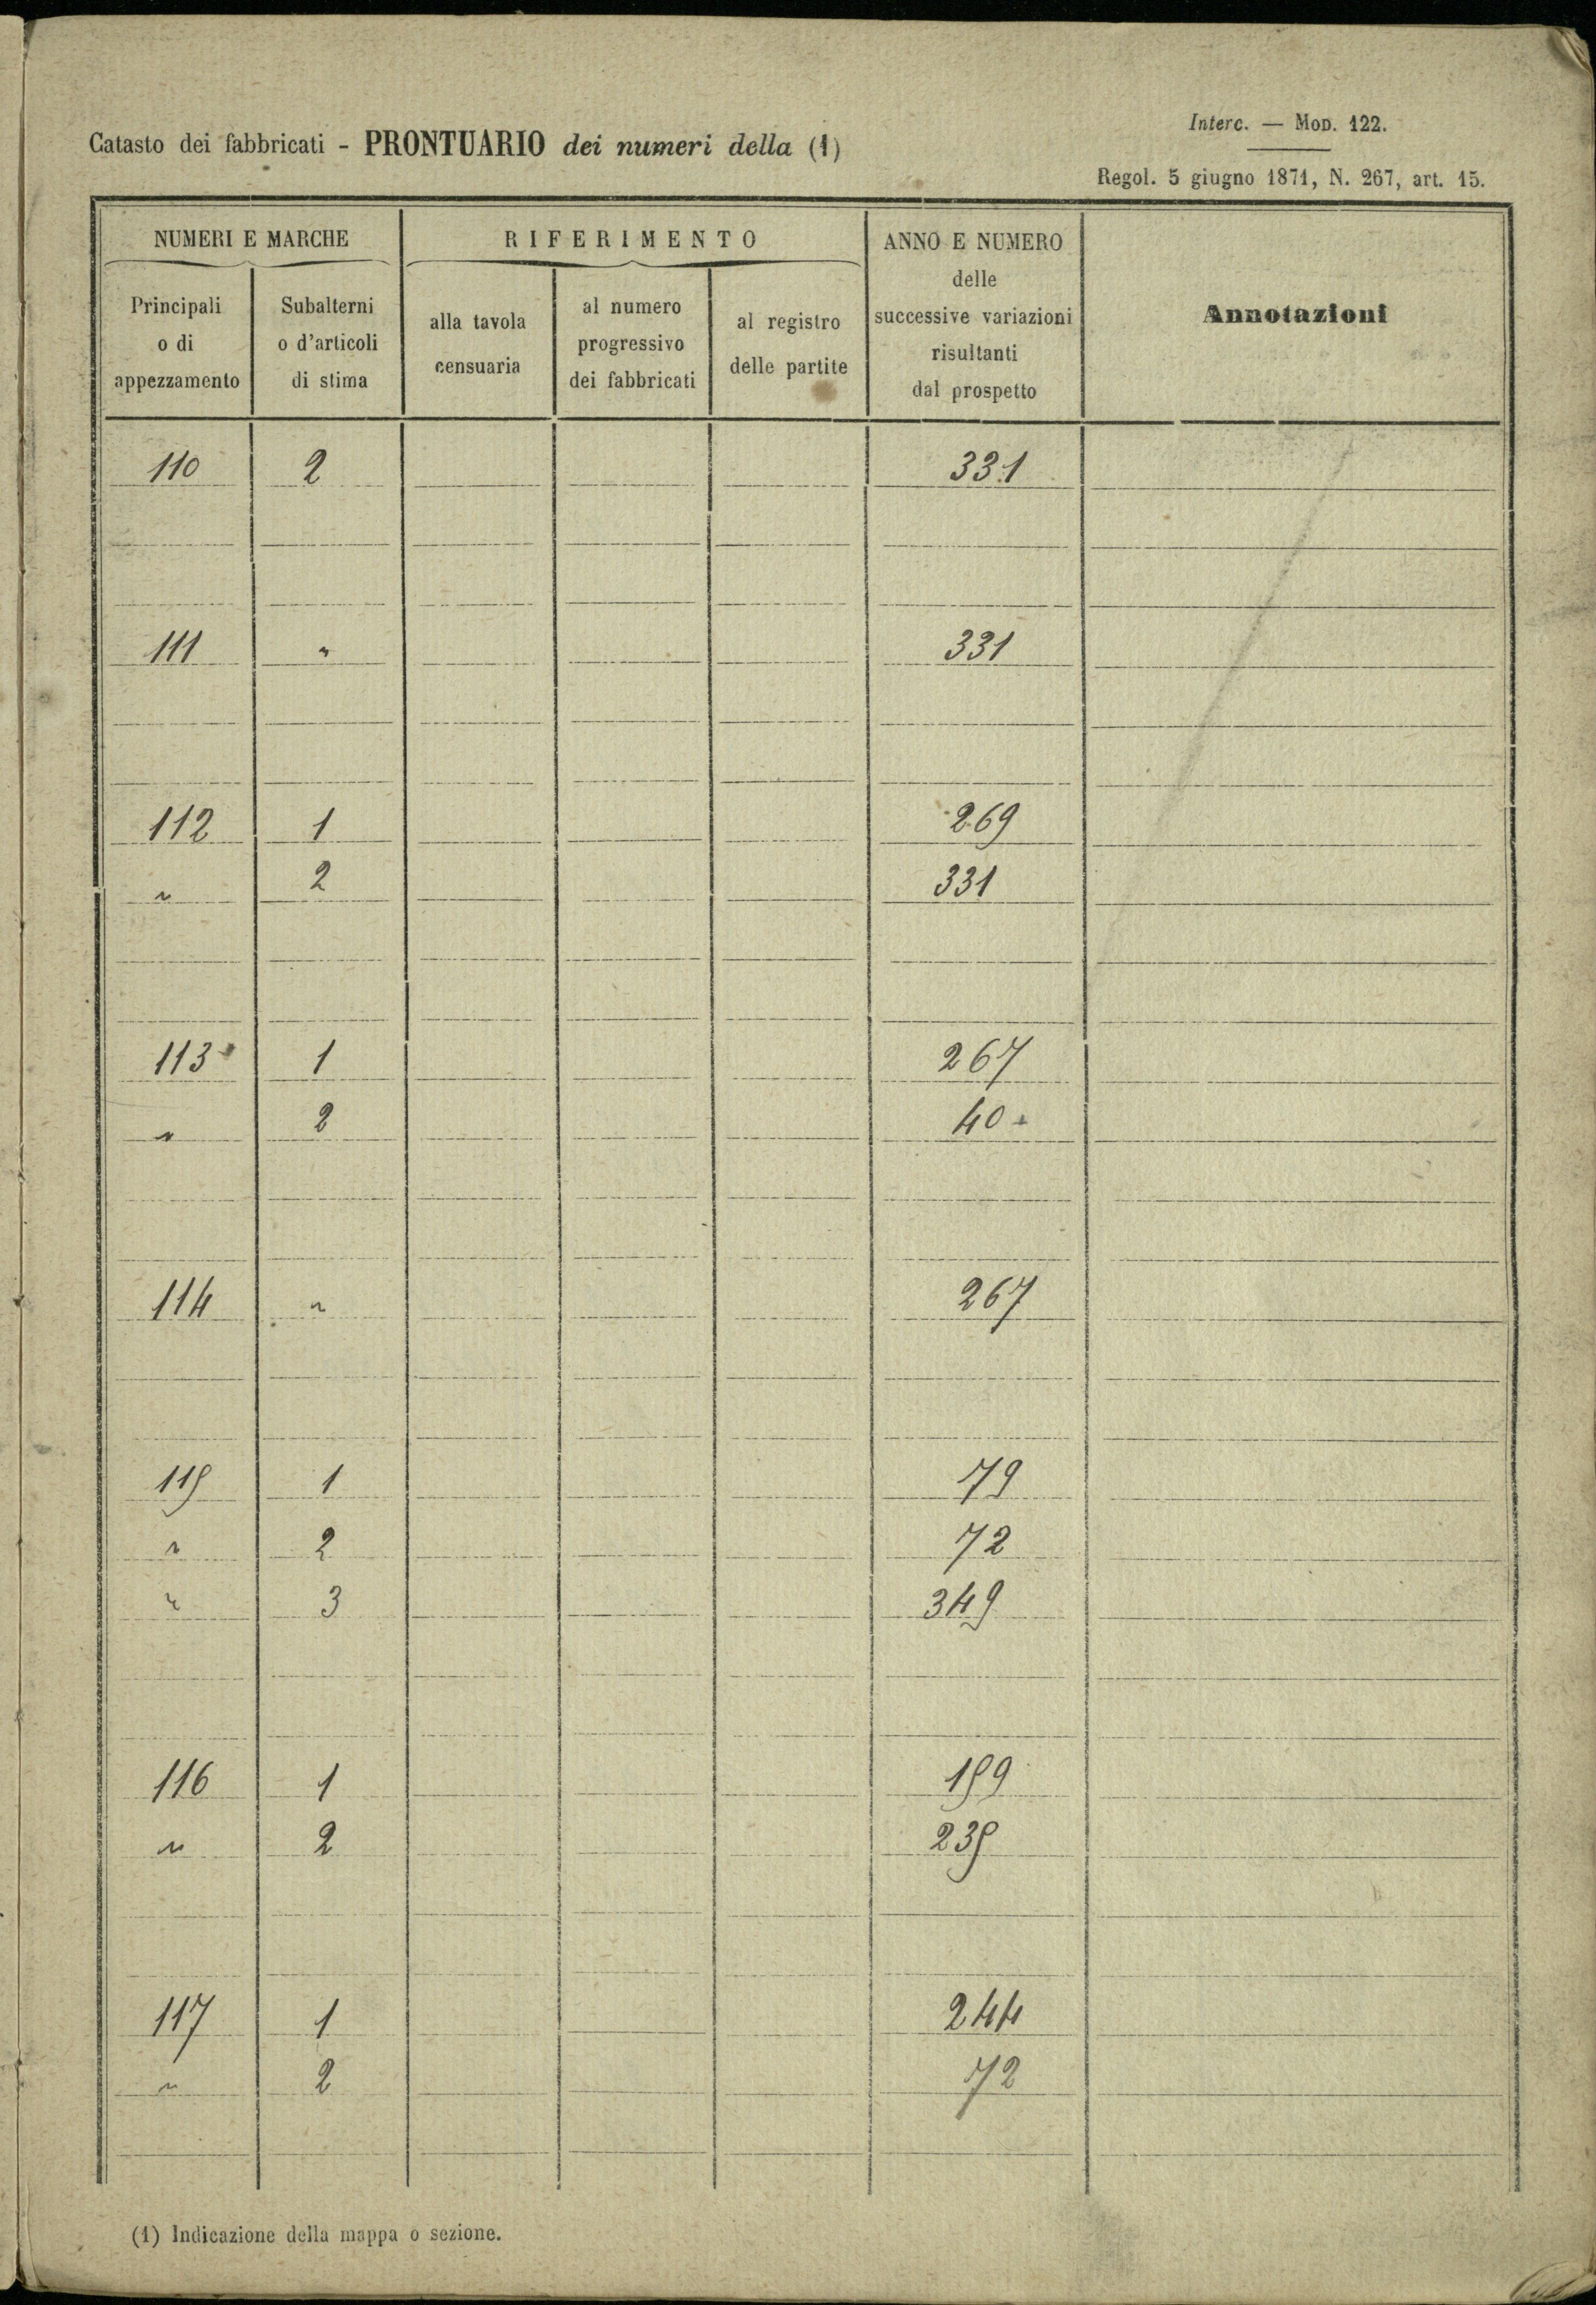 Catasto dei fabbricati - PRONTUARIO dei numeri della (1)
Interc. — MOD. 122.
Regol. 5 giugno 1871, N. 267, art. 15.
NUMERI E MARCHE
RIFERIMENTO
ANNO E NUMERO
delle
successive variazioni
risultanti
dal prospetto
Annotazioni
Principali
o di
appezzamento
Subalterni
o d'articoli
di stima
alla tavola
censuaria
al numero
progressivo
dei fabbricati
al registro
delle partite
110 2 331
111 " 331
112 1 269
" 2 331
113 1 267
" 2 40
114 " 267
115 1 79
" 2 72
" 3 349
116 1 159
" 2 235
117 1 244
" 2 72
(1) Indicazione della mappa o sezione.